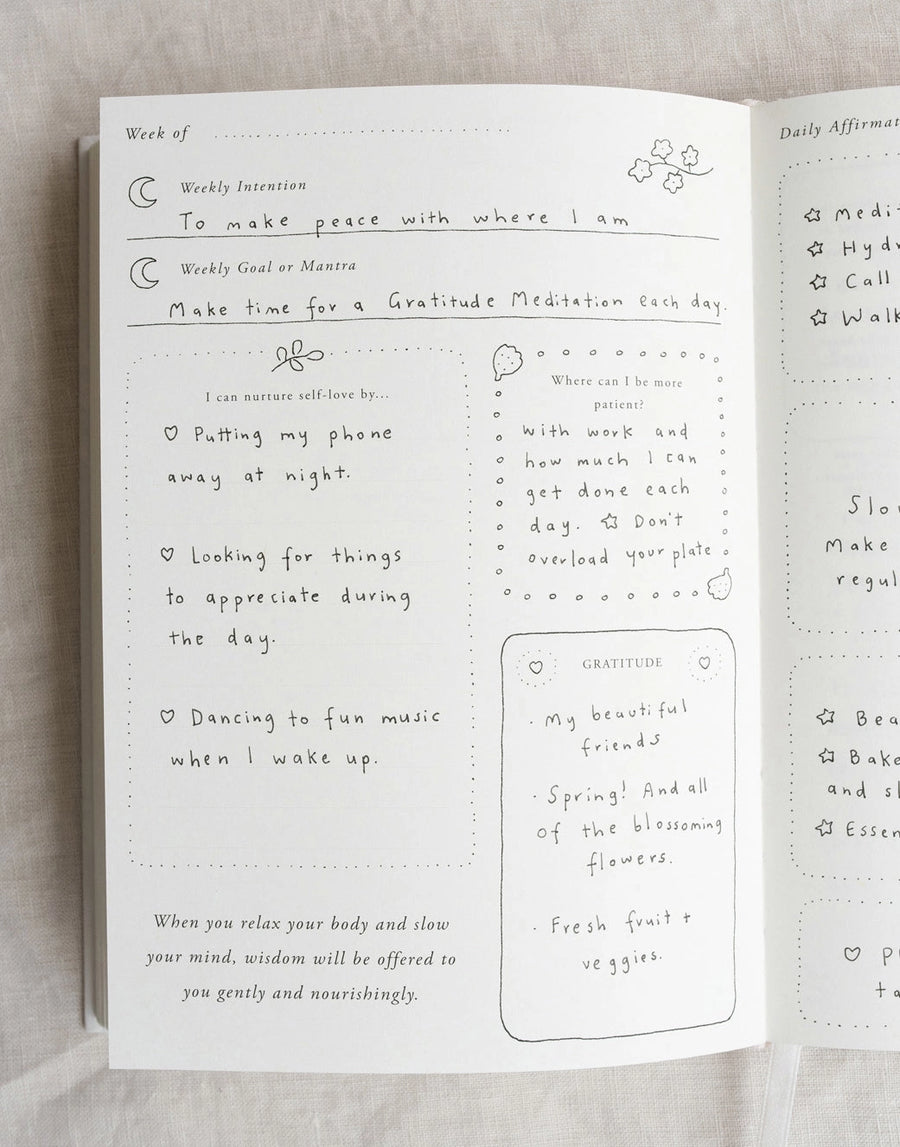 Week of
Weekly Intention
To make peace with where I am
Weekly Goal or Mantra
Make time for a Gratitude Meditation each day.
I can nurture self-love by...
Putting my phone
away at night.
Looking for things
to appreciate during
the day.
Dancing to fun music
when I wake up.
When you relax your body and slow
your mind, wisdom will be offered to
you gently and nourishingly.
Where can I be more
patient?
with work and
how much I can
get done each
day. Don't
overload your plate
GRATITUDE
· My beautiful
friends
· Spring! And all
of the blossoming
flowers.
· Fresh fruit +
veggies.
Daily
Call
Make
and